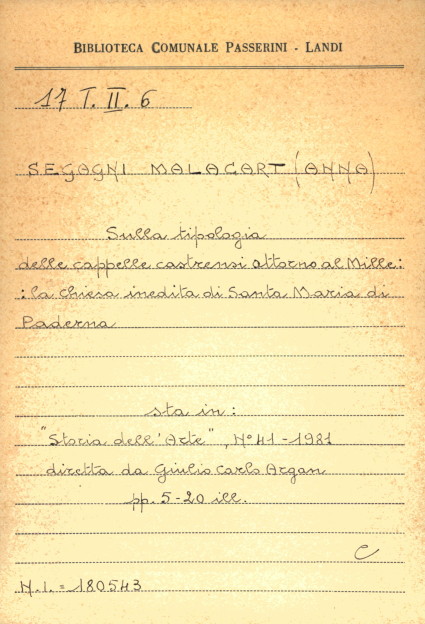 BIBLIOTECA COMUNALE PASSERINI - LANDI
17 T. II. 6
SEGAGNI MALACART (ANNA)
Sulla tipologia
delle cappelle castrensi attorno al Mille:
: la chiesa inedita di Santa Maria di
Paderna
sta in:
"Storia dell'Arte", N° 41 - 1981
diretta da Giulio Carlo Argan
pp. 5-20 ill.
C
N.I. = 180543